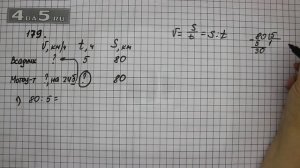 4a5.ru
179.
V, км/ч t, ч S, км
Всадник ? 5 80
Мотоц-т ?, на 24 Б ? 80
1) 80 : 5 =
V = S/t = S : t
80 5
5 1
30